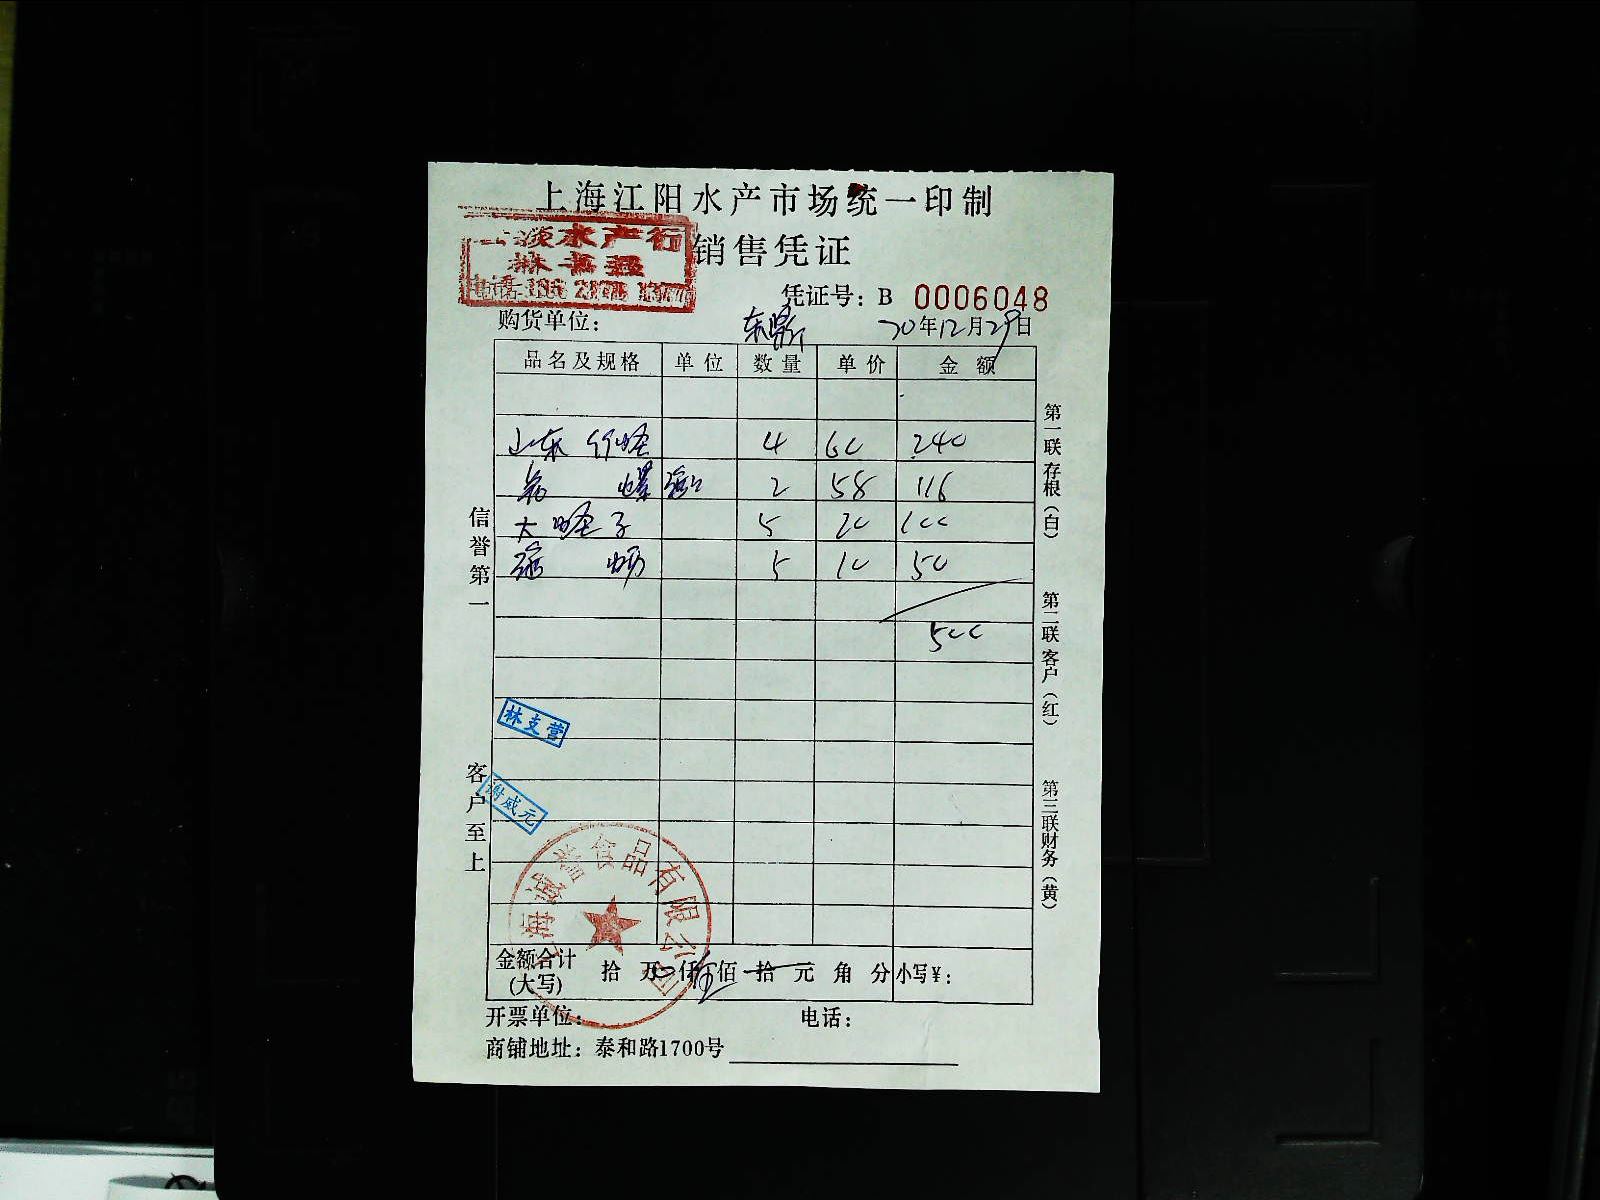 上海江阳水产市场统一印制
淡水产行
林
电话:
销售凭证
凭证号: B 0006048
购货单位: 20年12月29日
品名及规格 单位 数量 单价 金额
山东 竹蛏 4 60 240
螺 2 58 116
大蛏子 5 20 100
蛎 5 10 50
500
信誉第一
客户至上
第一联存根(白)
第二联客户(红)
第三联财务(黄)
林支营
谢威元
上海诚誉食品有限公司
金额合计(大写) 拾 万 仟 伍 佰 拾 元 角 分 小写¥:
开票单位: 电话:
商铺地址: 泰和路1700号